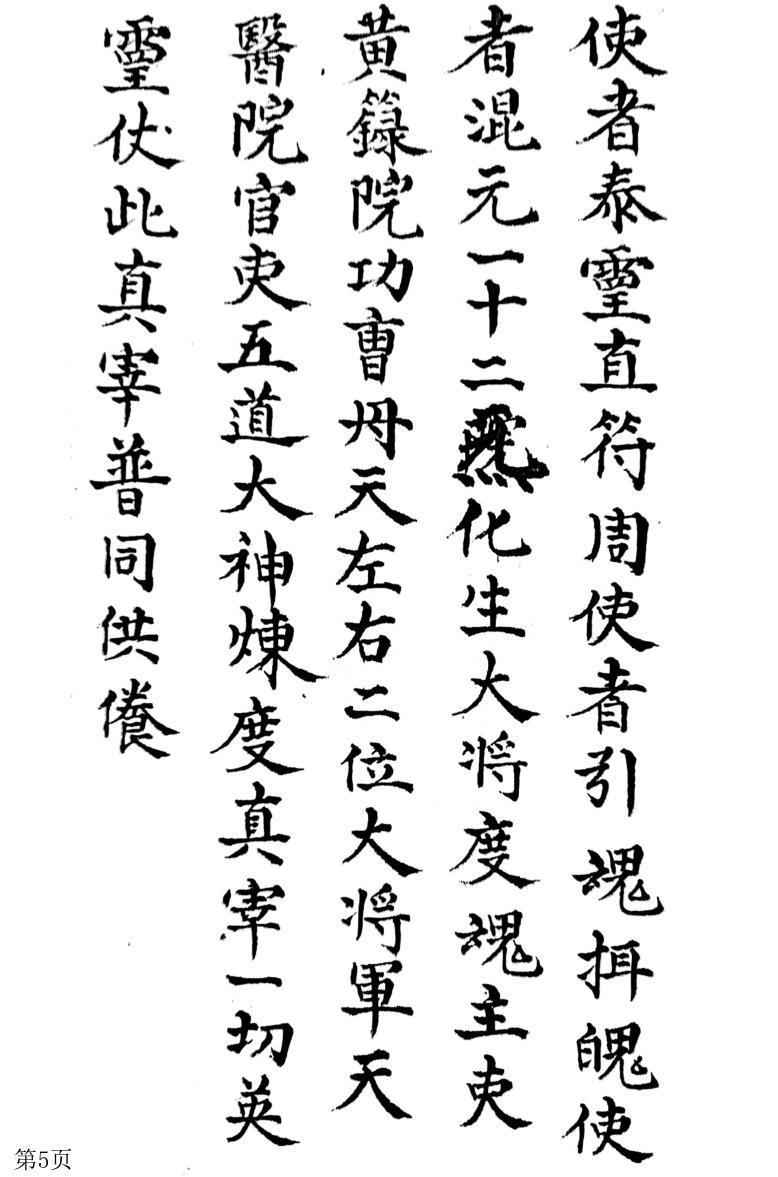 使者泰霊直符周使者引魂揖魄使
者混元一十二炁化生大将度魂主吏
黄籙院功曹丹天左右二位大将軍天
醫院官吏五道大神煉度真宰一切英
霊仗此真宰普同供養
第5页